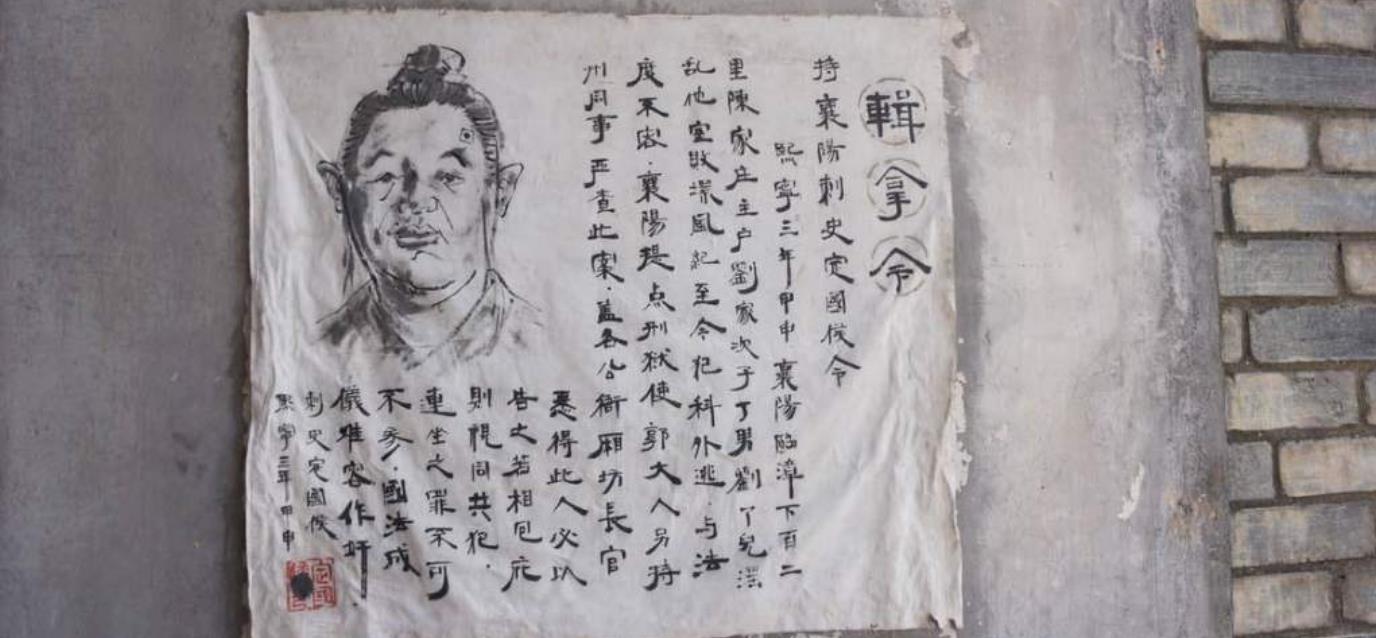 輯拿令
持襄陽刺史定國侯令
熙宁三年甲申襄陽臨漳下百二
里陳家庄主户劉家次子丁男劉丫兒淫
乱他室败壊風紀至令犯科外逃.与法
度不容.襄陽提点刑狱使郭大人另持
州同事严查此案.蓋各公衙厢坊長官
悉得此人必以
告之若相包庇
則視同共犯.
連坐之罪不可
不参.國法成
儀难容作奸.
刺史定國侯
熙宁三年甲申